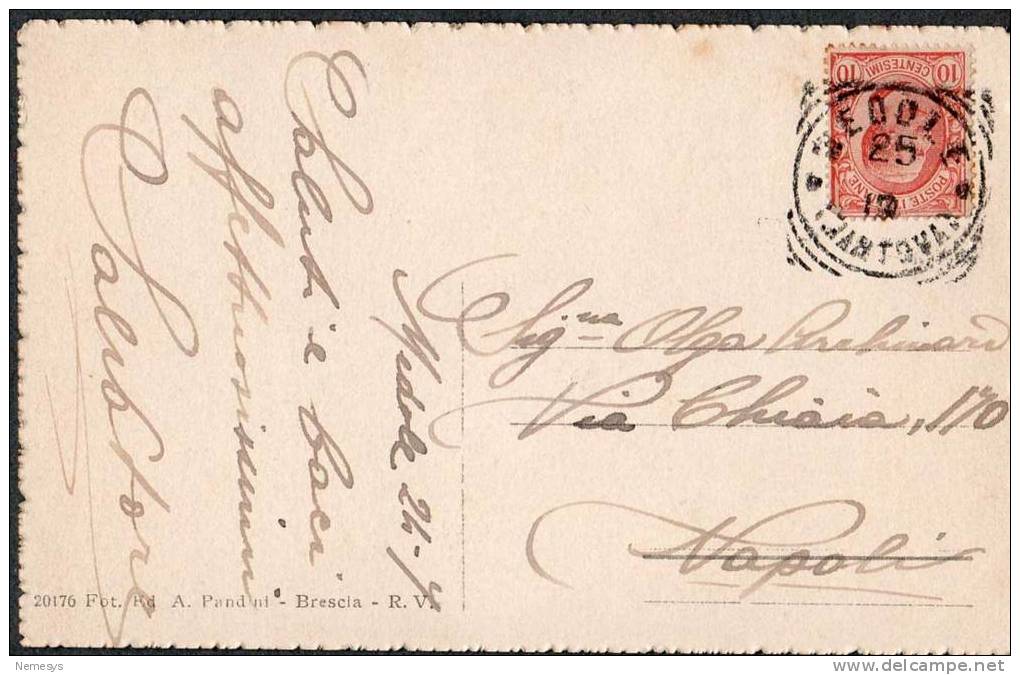 Medole 24-
Saluti e baci
affettuosissimi
Salvatore
10 CENTESIMI 10
POSTE ITALIANE
MEDOLE
25
(MANTOVA)
Signa Olga
Via Chiaia, 170
Napoli
20176 Fot. Ed A. Pandini - Brescia - R. V.
Nemesys
delcampe.net